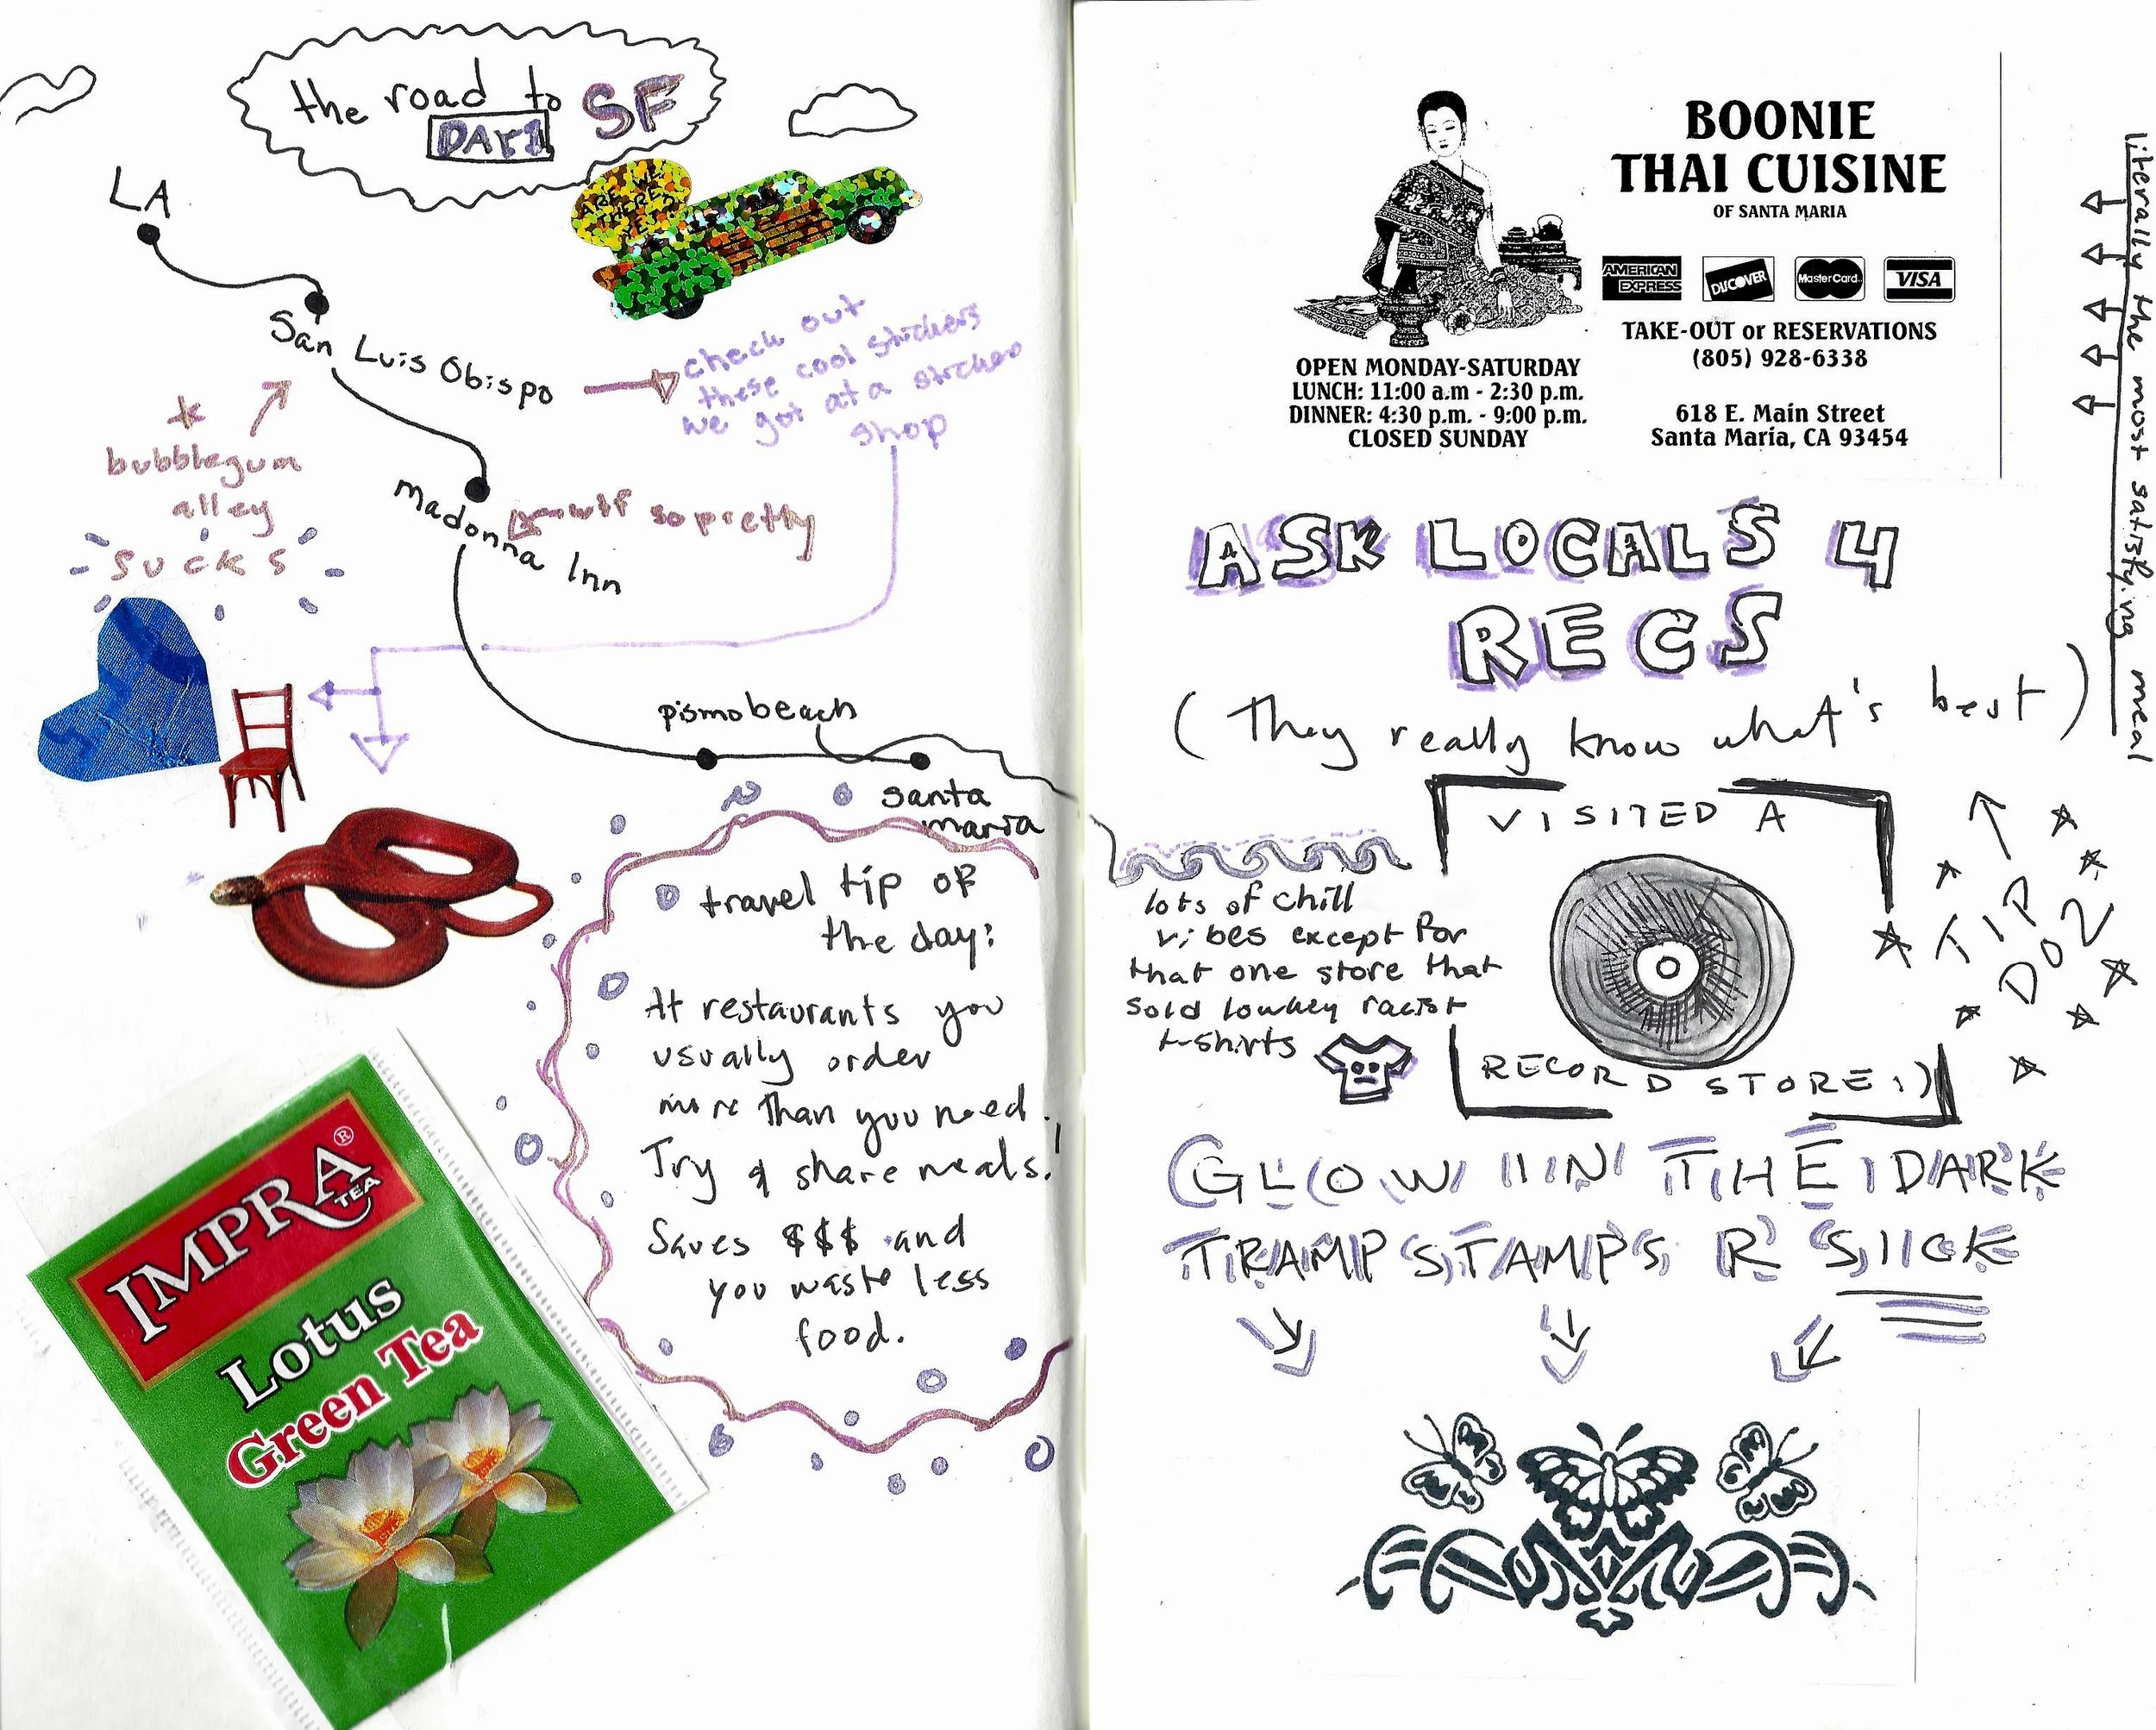 the road to SF
DAY 1
LA
ARE WE
THERE
YET?
San Luis Obispo
check out
these cool stickers
we got at a sticker
shop
* bubblegum
alley
SUCKS
Madonna Inn
wtf so pretty
pismo beach
santa
maria
travel tip of
the day:
At restaurants you
usually order
more than you need.
Try & share meals!
Saves $$$ and
you waste less
food.
IMPRA®
TEA
Lotus
Green Tea
BOONIE
THAI CUISINE
OF SANTA MARIA
AMERICAN
EXPRESS
DISCOVER
MasterCard
VISA
TAKE-OUT or RESERVATIONS
(805) 928-6338
OPEN MONDAY-SATURDAY
LUNCH: 11:00 a.m - 2:30 p.m.
DINNER: 4:30 p.m. - 9:00 p.m.
CLOSED SUNDAY
618 E. Main Street
Santa Maria, CA 93454
literally the most satisfying meal
ASK LOCALS 4
RECS
(They really know what's best)
TIP
DOZ
lots of chill
vibes except for
that one store that
sold lowkey racist
t-shirts
VISITED A
RECORD STORE :)
GLOW IN THE DARK
TRAMP STAMPS R SICK